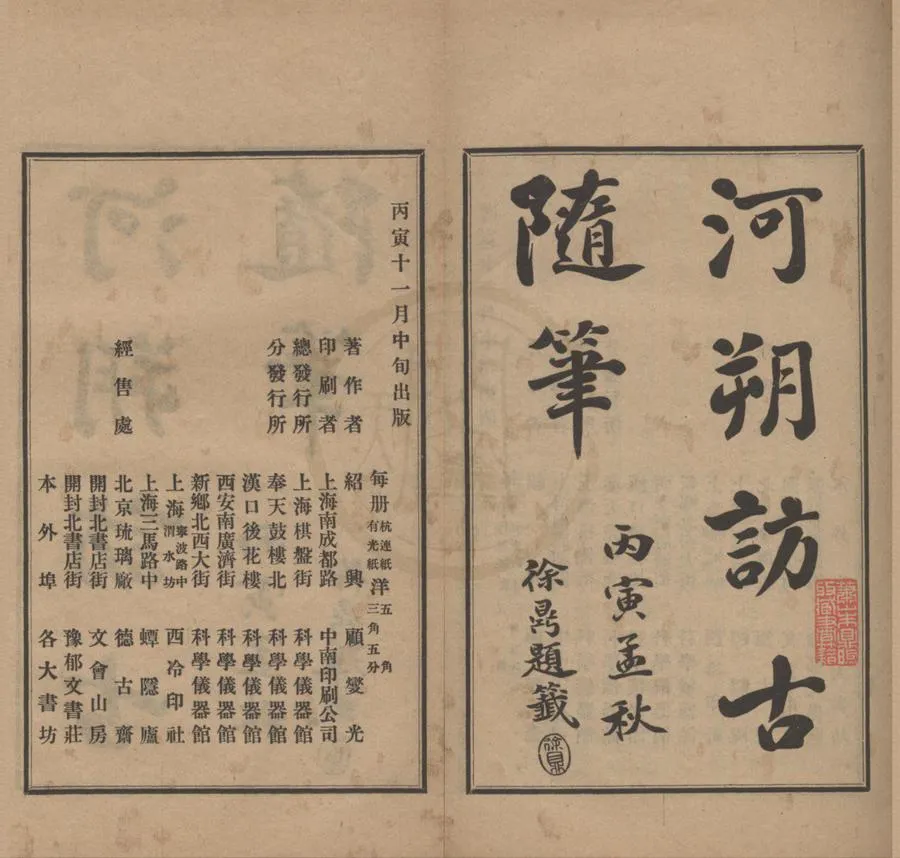 河朔訪古
隨筆
丙寅孟秋
徐鼎題籤
徐鼎
蕭山朱鼎煦
收藏書籍
丙寅十一月中旬出版
每册 杭連紙 有光紙 洋 五角 三角五分
著作者 紹興 顧燮光
印刷者 上海南成都路 中南印刷公司
總發行所 上海棋盤街 科學儀器館
分發行所 奉天鼓樓北 科學儀器館
漢口後花樓 科學儀器館
西安南廣濟街 科學儀器館
新鄉北西大街 科學儀器館
上海寧波路中渭水坊 西冷印社
上海三馬路中 蟫隱廬
經售處 北京琉璃廠 德古齋
開封北書店街 文會山房
開封北書店街 豫郁文書莊
本外埠 各大書坊